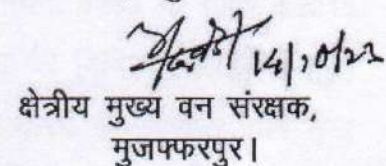 14/10/23
क्षेत्रीय मुख्य वन संरक्षक,
मुजफ्फरपुर।